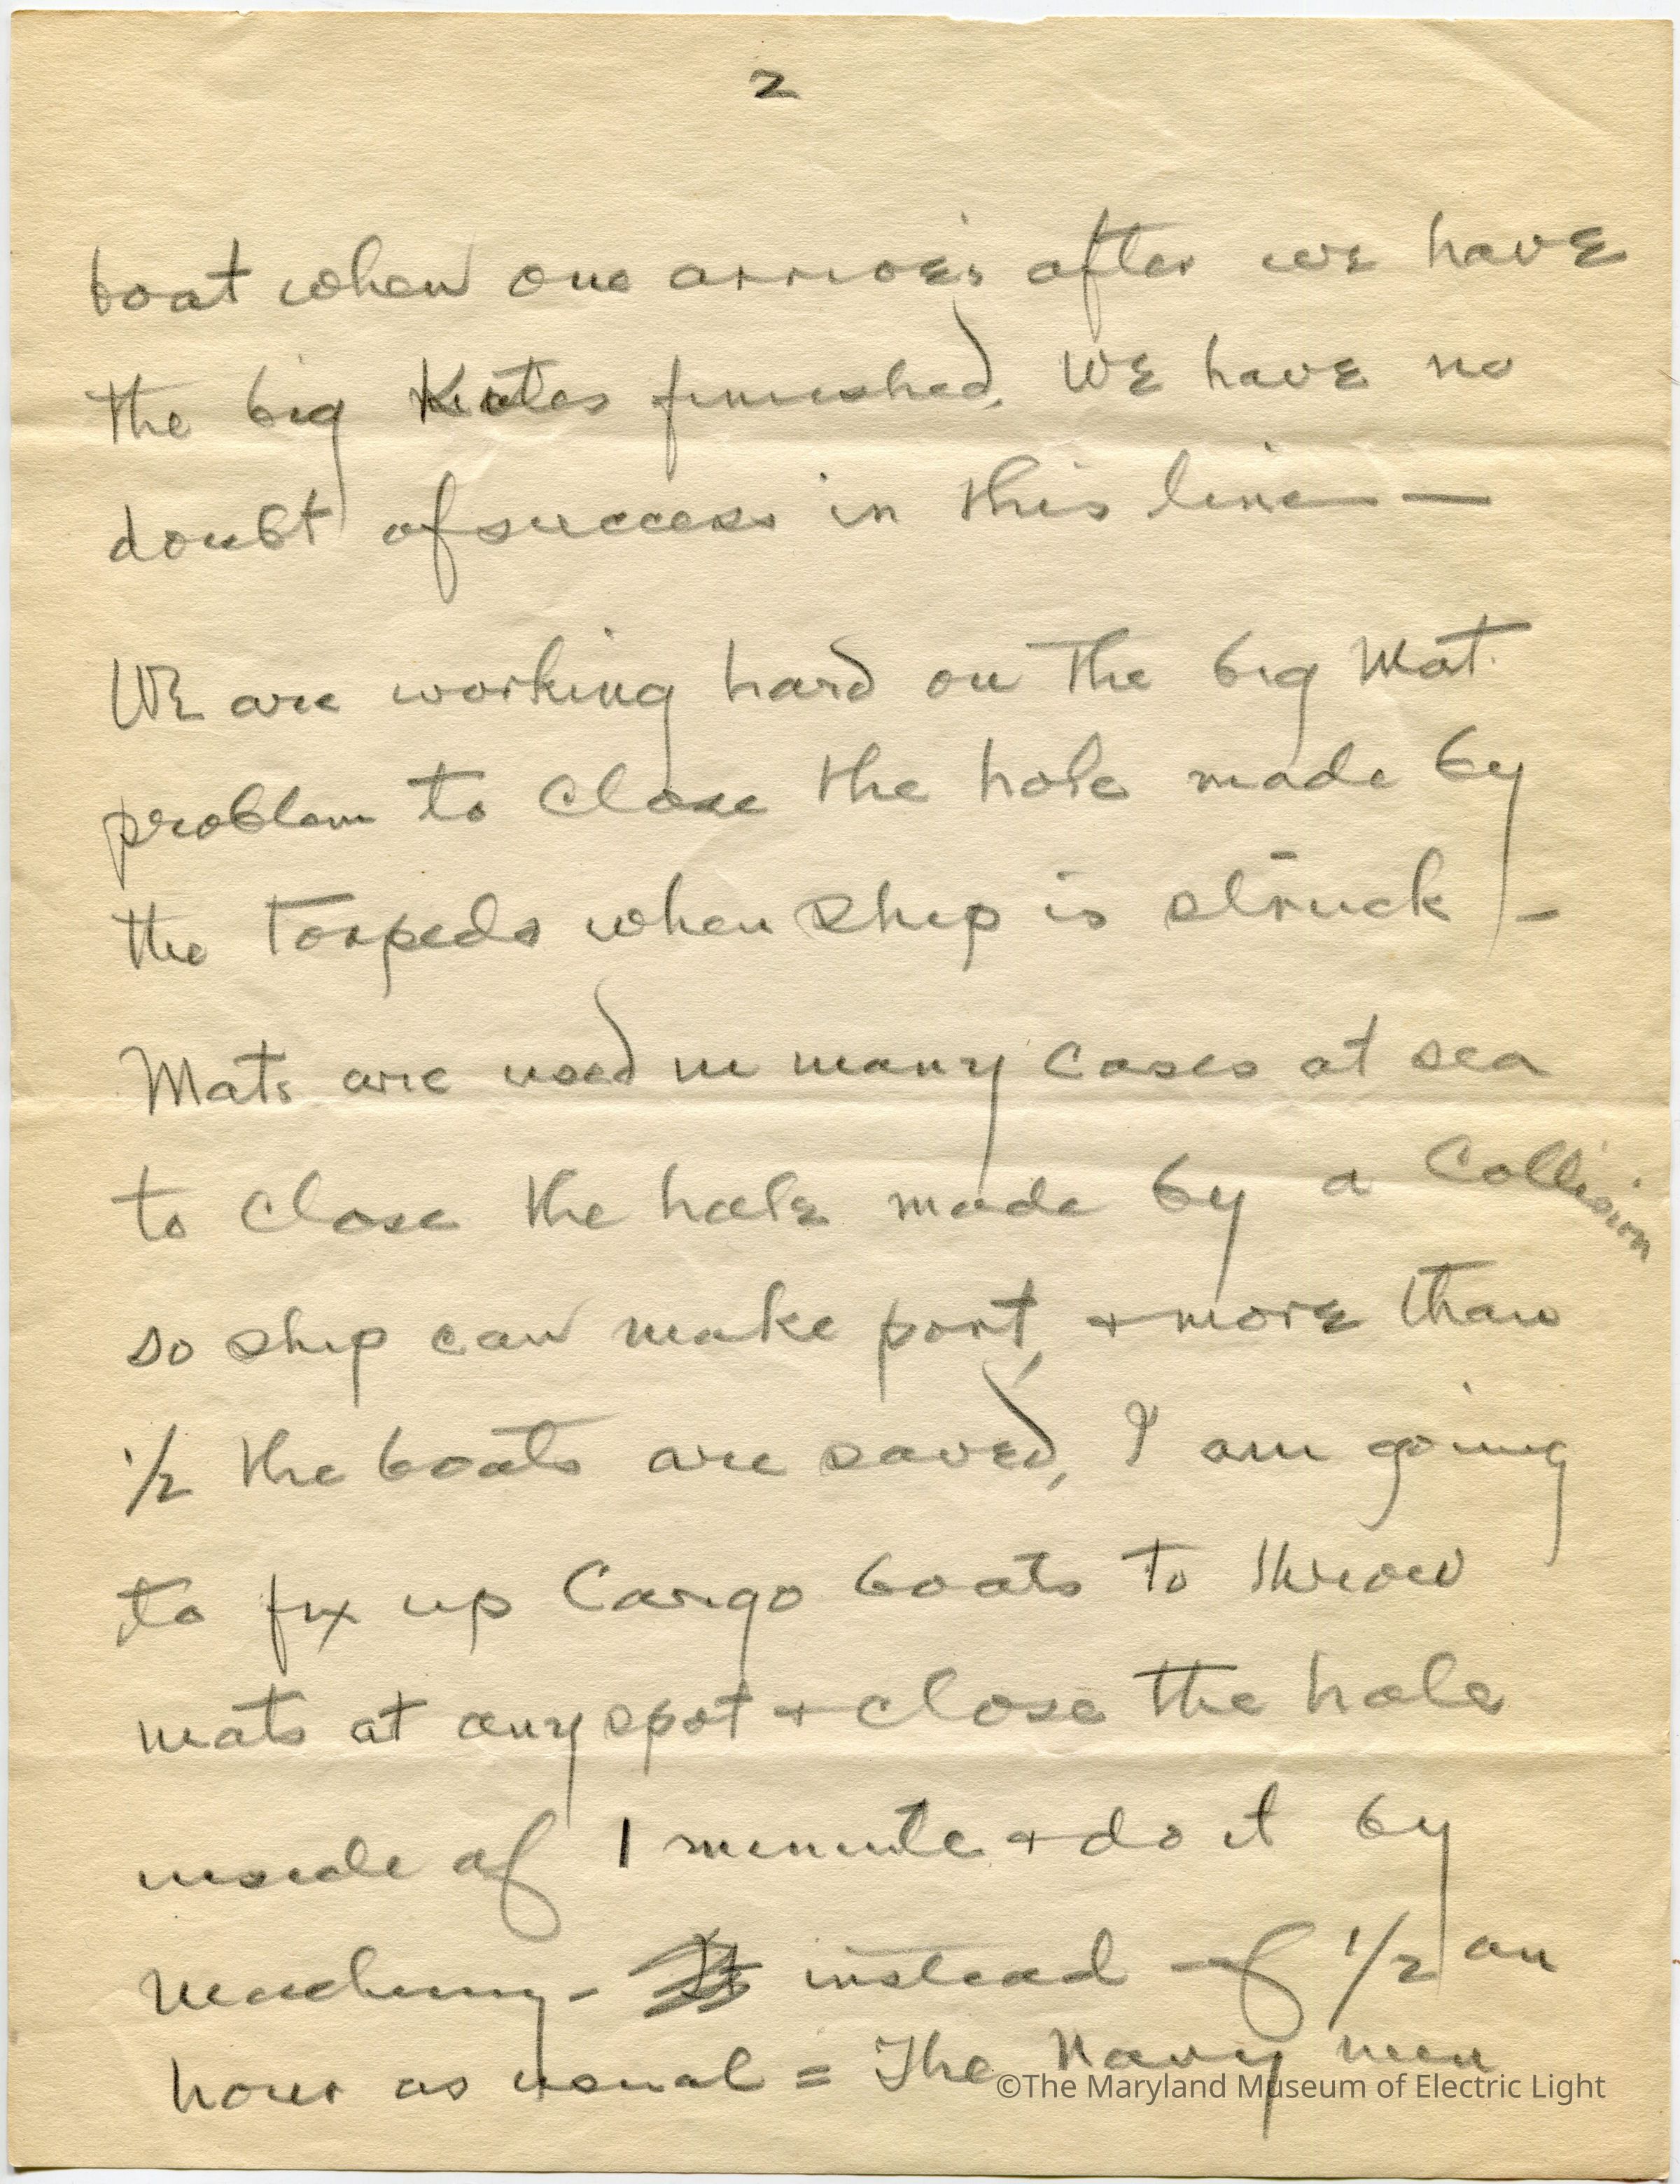 2
boat when one arrives after we have
the big Kites finished. We have no
doubt of success in this line —
We are working hard on the big Mat
problem to Close the hole made by
the Torpedo when ship is struck —
Mats are used in many cases at sea
to close the hole made by a Collision
so ship can make port, + more than
1/2 the boats are saved, I am going
to fix up Cargo boats to throw
mats at any spot + close the hole
inside of 1 minute + do it by
Machinery - instead of 1/2 an
hour as usual = The Navy men
©The Maryland Museum of Electric Light